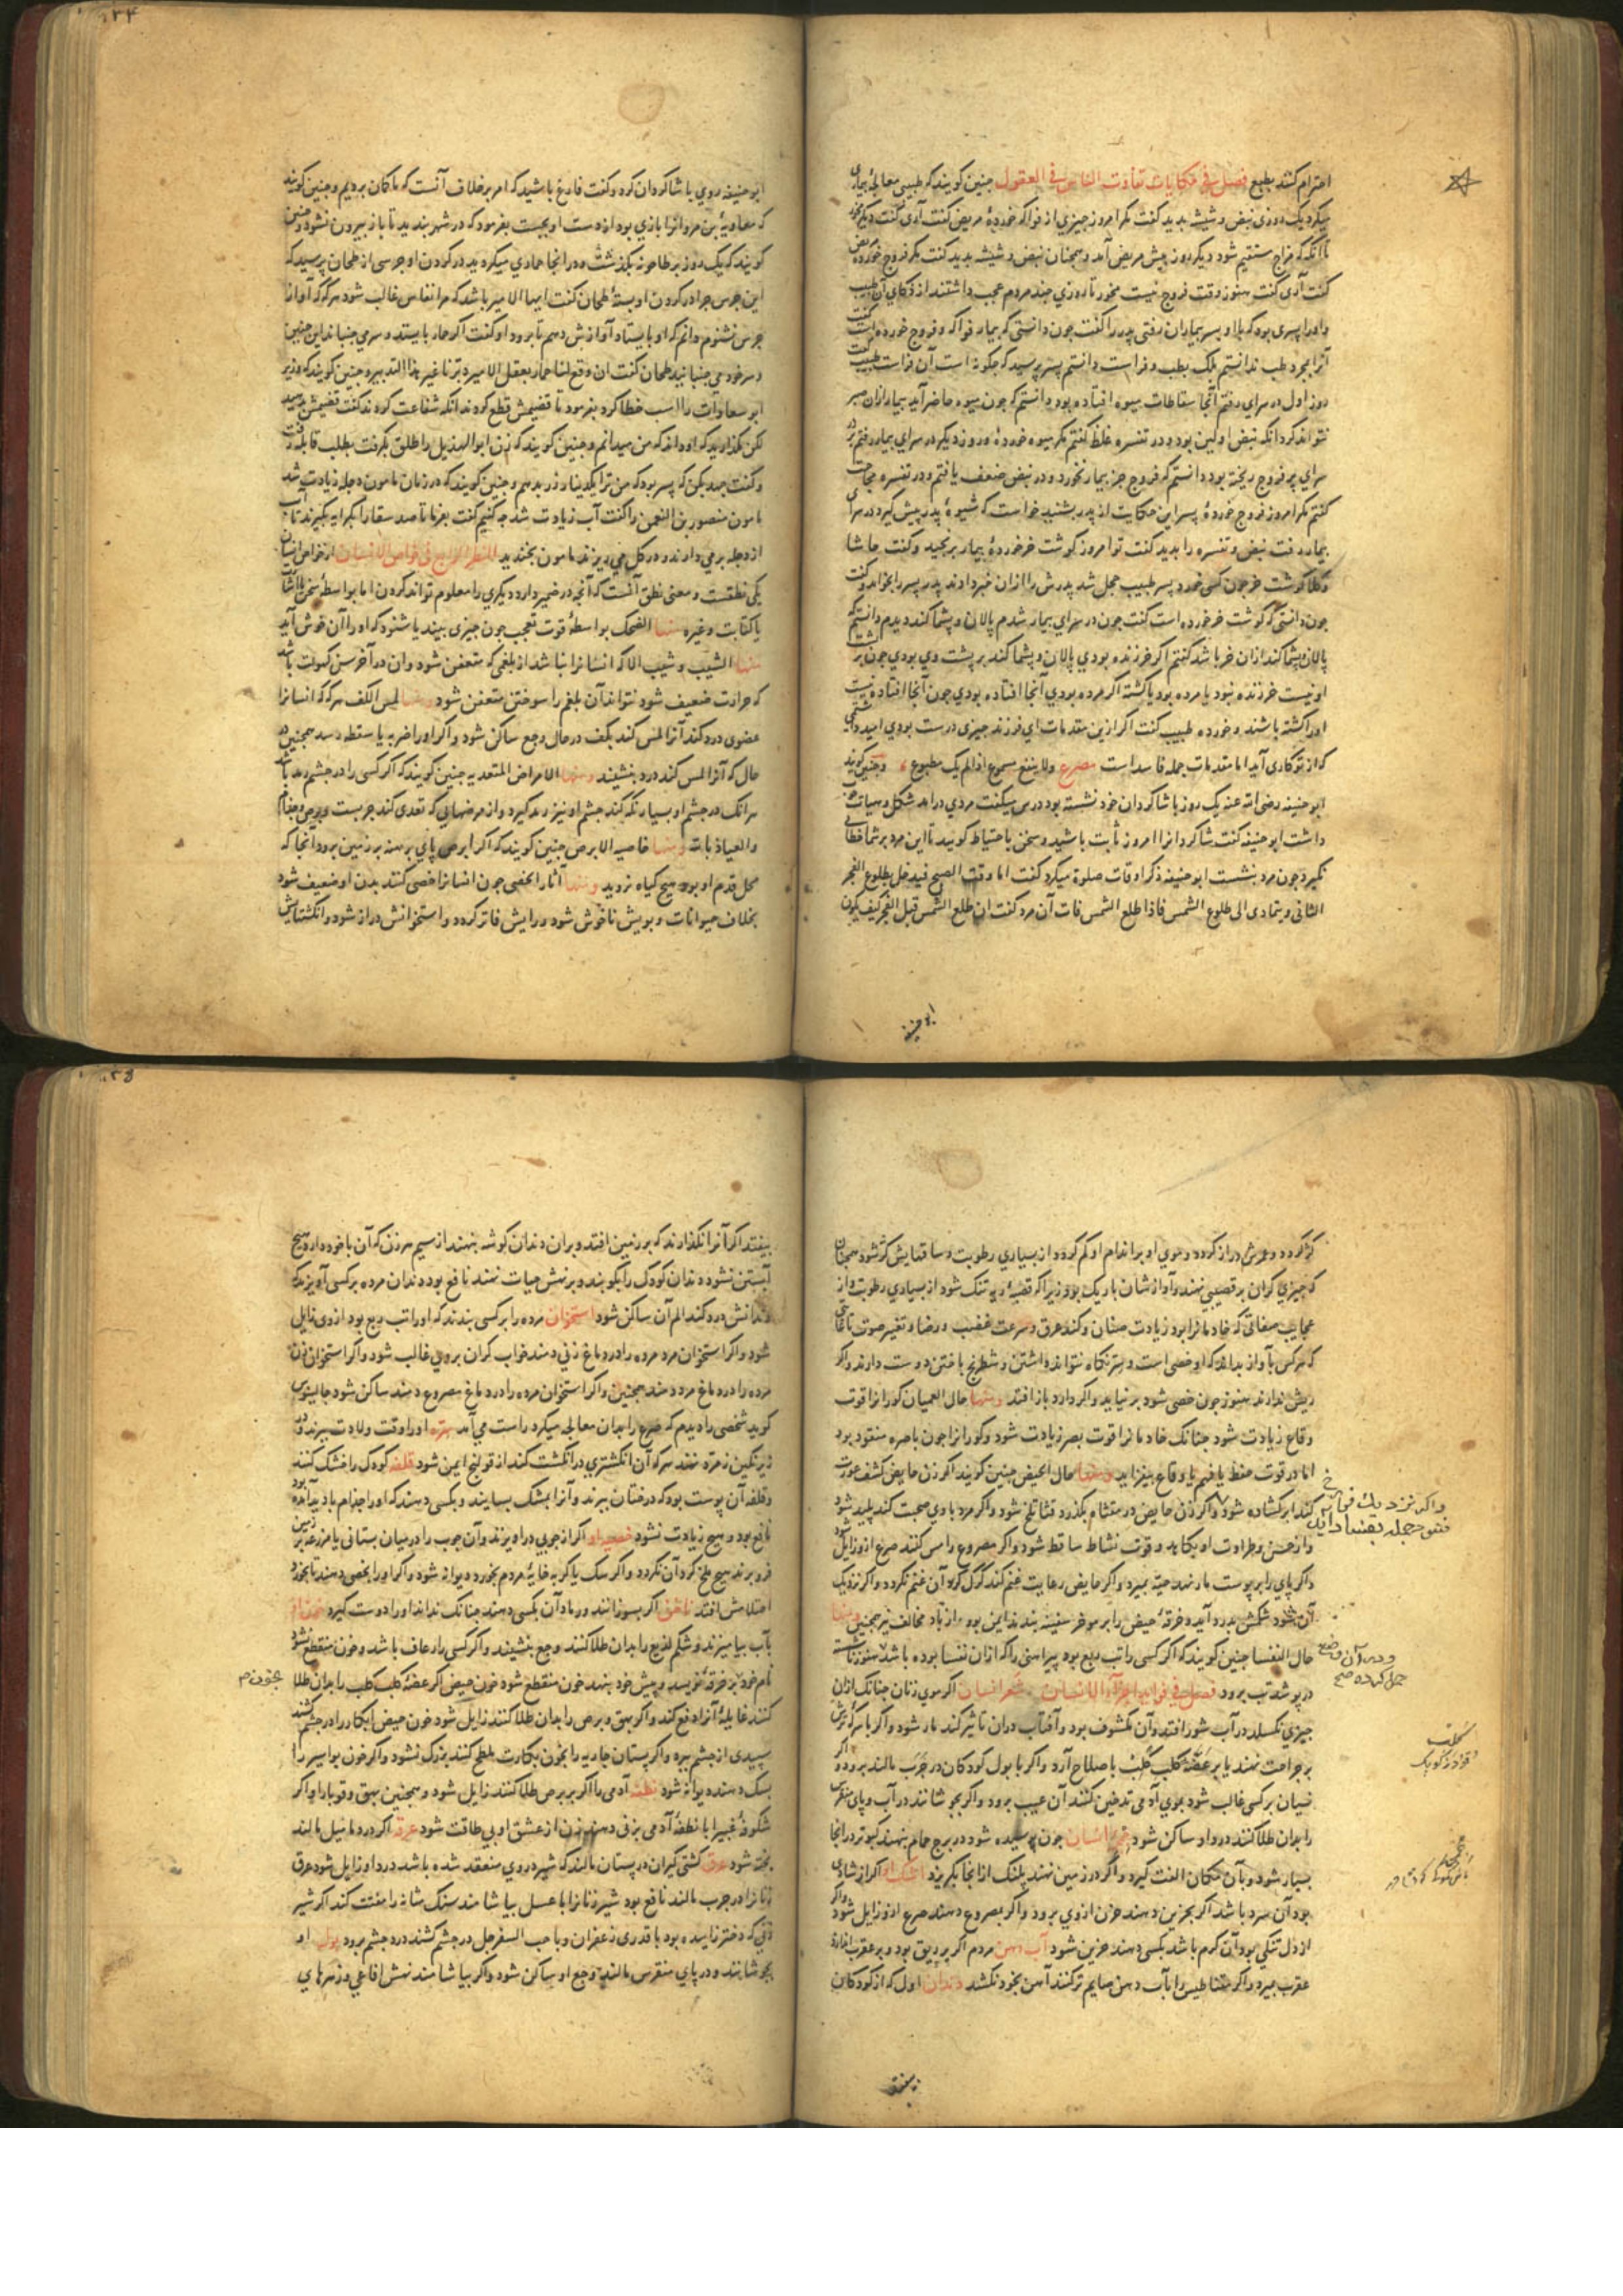 احترام کنند بطبع فصل في حکایات تفاوت الناس في العقول چنین کویند که طبیبی معالجهٔ بیماری
میکرد یک روزی نبض و شیشه بدید کفت مکر امروز چیزی از فواکه خوردهٔ مریض کفت آری کفت دیکر مخور
تا آنکه که مزاج مستقیم شود دیکر روز پیش مریض آمد و همچنان نبض و شیشه بدید کفت مکر فروج خوردهٔ مریض
کفت آری کفت هنوز وقت فروج نیست مخور تا روزی چند مردم عجب داشتند از ذکای آن طبیب
و او را پسری بود که با او بسر بیماران رفتی پدر را کفت چون دانستی که بیمار فواکه و فروج خورده است کفت
آنرا بمجرد طب ندانستم بلک بطب و فراست دانستم پسر پرسید که چکونه است آن فراست طبیب کفت
روز اول در سرای رفتم آنجا سقاطات میوه افتاده بود دانستم که چون میوه حاضر آید بیمار از آن صبر
نتواند کرد آنکه نبض او کین بود و در تفسره غلظ کفتم مکر میوه خوردهٔ و روز دیکر در سرای بیمار رفتم بر در
سرای پر فروج ریخته بود دانستم که فروج جز بیمار نخورد و در نبض ضعف یافتم و در تفسره
کفتم مکر امروز فروج خوردهٔ پسر این حکایت از پدر بشنید خواست که شیوهٔ پدر پیش کیرد در سرای
بیمار رفت نبض و تفسره را بدید کفت تو امروز کوشت خر خوردهٔ بیمار برنجید و کفت حاشا
و کلا کوشت خر چون کسی خورد پسر طبیب خجل شد پدرش را از آن خبر دادند پدر پسر را بخواند و کفت
چون دانستی که کوشت خر خورده است کفت چون در سرای بیمار شدم پالان و پشماکند دیدم دانستم که
پالان و پشماکند از ان خر باشد کفتم اکر خر زنده بودی پالان و پشماکند بر پشت وی بودی چون بر پشت
او نیست خر زنده نبود یا مرده بود یا کشته اکر مرده بودی آنجا افتاده بودی چون آنجا افتاده نیست
او را کشته باشند و خورده طبیب کفت اکر ازین مقدمات ای فرزند چیزی درست بودی امید داشتمی
که از تو کاری آید اما مقدمات جمله فاسد است مصرع ولا ینفع مسموع اذا لم یک مطبوع و چنین کویند
ابو حنیفه رضی الله عنه یک روز با شاکردان خود نشسته بود درس میکفت مردی درآمد شکل و هیات خوب
داشت ابو حنیفه کفت شاکردانرا امروز ثابت باشید و سخن باحتیاط کویید تا این مرد بر شما خطایی
نکیرد چون مرد بنشست ابو حنیفه ذکر اوقات صلوة میکرد کفت اما وقت الصبح فیدخل بطلوع الفجر
الثانی و یتمادی الی طلوع الشمس فاذا طلع الشمس فات آن مرد کفت ان طلع الشمس قبل الفجر کیف یکون
ابو حنیفه
۱۳۴
ابو حنیفه روی باشاکردان کرد و کفت فارغ باشید که امر بر خلاف آنست که ما کمان بردیم و چنین کویند
که معاویة بن مروانرا بازی بود از دست او بجست بفرمود که در شهر ببندید تا باز بیرون نشود و چنین
کویند که یک روز بر طاحونه بکذشت و در انجا حماری میکردید در کردن او جرسی از طحان پرسید که
این جرس چرا در کردن او بستهٔ طحان کفت ایها الامیر باشد که مرا نعاس غالب شود هرکه که اواز
جرس نشنوم دانم که او بایستاد آوازش دهم تا برود او کفت اکر حمار بایستد و سر می جنباند این چنین
و سر خود می جنبانید طحان کفت ان وقع لنا حمار بعقل الامیر دبرنا غیر هذا التدبیر و چنین کویند که وزیر
ابو سعادات را اسب خطا کرد بفرمود تا قضیمش قطع کردند آنکه شفاعت کردند کفت قضیمش بدهید
لکن مکذارید که او داند که من میدانم و چنین کویند که زن ابو الهذیل را طلق بکرفت بطلب قابله رفت
و کفت جهد بکن که پسر بود که من ترا یکدینار زر بدهم و چنین کویند که در زمان مامون دجله زیادت شد
مامون منصور بن النعمن را کفت آب زیادت شد چه کنیم کفت بفرما تا صد سقا را بکرا یه بکیرند تا آب
از دجله بر می دارند و در کل می ریزند مامون بخندید النظر الرابع في خواص الانسان از خواص انسان
یکی نطقست و معنی نطق آنست که آنچه در ضمیر دارد دیکری را معلوم تواند کردن اما بواسطهٔ سخن یا اشارت
یا کتابت و غیره منها الضحک بواسطهٔ قوت تعجب چون چیزی بیند یا شنود که او را آن خوش آید
منها الشیب و شیب الا که انسانرا نباشد از بلغمی که متعفن شود وان در آخر سن کهولت باشد
که حرارت ضعیف شود نتواند آن بلغم را سوختن متعفن شود ومنها لمس الکف هرکه که انسانرا
عضوی درد کند آنرا لمس کند بکف در حال وجع ساکن شود و اکر او را ضربه یا سقطه رسد همچنین در
حال که آنرا لمس کند درد بنشیند ومنها الامراض المتعدیه چنین کویند که اکر کسی را در چشم رمد باشد
هرآنک در چشم او بسیار نکه کند چشم او نیز رمد کیرد و از مرضهایی که تعدی کند جربست و برص و جذام
والعیاذ بالله ومنها خاصیه الابرص چنین کویند که اکر ابرص پای برهنه بر زمین برود آنجا که
محل قدم او بود هیچ کیاه نروید ومنها آثار الخصی چون انسانرا خصی کنند بدن او ضعیف شود
بخلاف حیوانات و بویش ناخوش شود و رایش فاتر کردد و استخوانش دراز شود و انکشتانش
کژ کردد و عمرش دراز کردد و موی او بر اندام او کم کردد از بسیاری رطوبت و ساقهایش کژ شود همچنان
که چیزی کران بر قضیبی نهند و آوازشان باریک بود زیرا که قصبهٔ ریه تنک شود از بسیاری رطوبت و از
عجایب صفاتی که خادمانرا بود زیادت صنان و کند عرق و سرعت غضب و رضا و تغیر صوت تا غایتی
که هرکس بآواز بداند که او خصی است و سر نکاه نتواند داشتن و شطرنج باختن دوست دارند و اکر
ریش ندارند هنوز چون خصی شود برنیاید و اکر دارد باز افتد ومنها حال العمیان کورانرا قوت
وقاع زیادت شود چنانک خادمانرا قوت بصر زیادت شود و کورانرا چون باصره مفقود بود
اما در قوت حفظ یا فهم یا وقاع بیفزاید ومنها حال الحیض چنین کویند اکر زن حایض کشف عورت
کند ابر کشاده شود و اکر زن حایض در مقثاه بکذرد قثا تلخ شود و اکر مرد با وی صحبت کند پلید شود
و از حسن و طراوت او بکاهد و قوت نشاط ساقط شود و اکر مصروع را مس کنند صرع از و زایل شود
و اکر پای را بر پوست مار نهد حیه بمیرد و اکر حایض رعایت غنم کند کرک کرد آن غنم نکردد و اکر نزدیک
آن شود شکمش بدرد آید و خرقهٔ حیض را بر موخر سفینه بندند ایمن بود از باد مخالف نیز همچنین ومنها
حال النفسا چنین کویند که اکر کسی را تب ربع بود پیراهنی را که از ان نفسا بوده باشد هنوز ناشسته
در پوشد تب برود فصل في فواید اجزاء الانسان شعر انسان اکر موی زنان چنانک از ان
چیزی نکسلد در آب شور افتد و آن مکشوف بود و آفتاب در ان تاثیر کند مار شود و اکر با سرکه ترش
بر جراحت نهند یا بر عضهٔ کلب کلب باصلاح آرد و اکر با بول کودکان در جرب مالند برود و اکر
نسیان بر کسی غالب شود بموی آدمی تدخین کنند آن عیب برود و اکر بجوشانند در آب و پای منقرس
را بدان طلا کنند درد او ساکن شود انسان چون پوسیده شود در برج حمام بنهند کبوتر در انجا
بسیار شود و بآن مکان الفت کیرد و اکر در زمین نهند پلنک از انجا بکریزد اشک او اکر از شادی
بود آن سرد باشد اکر بحزین دهند حزن از وی برود و اکر بمصروع دهند صرع از و زایل شود و اکر
از دل تنکی بود آن کرم باشد بکسی دهند حزین شود آب دهن مردم اکر بر ریق بود و بر عقرب اندازد
عقرب بمیرد و اکر مغناطیس را بآب دهن صایم تر کنند آهن بخود نکشد دندان اول که از کودکان
واکر نزدیک
بیفتد
۱۳۵
بیفتد اکر آنرا نکذارند که بر زمین افتد و بر ان دندان کوشه بنهند از سیم هر زن که آن با خود دارد هیچ
آبستن نشود دندان کودک را بکوبند و بر نهش حیات نهند نافع بود دندان مرده بر کسی آویزند که
دندانش درد کند الم آن ساکن شود استخوان مرده را بر کسی بندند که او را تب ربع بود از وی زایل
شود و اکر استخوان مرد مرده را در دماغ زنی دمند خواب کران بر وی غالب شود و اکر استخوان زن
مرده را در دماغ مرد دمند همچنین و اکر استخوان مرده را در دماغ مصروع دمند ساکن شود جالینوس
کوید شخصی را دیدم که صرع را بدان معالجه میکرد راست می آمد سره او را وقت ولادت ببرند و در
زیر نکین زمرد نهند هرکه آن انکشتری در انکشت کند از قولنج ایمن شود قلفه کودک را خشک کنند
و قلفه آن پوست بود که در ختان ببرند و آنرا بمشک بسایند و بکسی دهند که او را جذام بادید آمده بود
نافع بود و هیچ زیادت نشود خصیه او اکر از چوبی در آویزند و آن چوب را در میان بستانی یا مزرعه بر زمین
فرو برند هیچ ملخ کرد آن نکردد و اکر سک یا کربه خایهٔ مردم بخورد دیوانه شود و اکر او را بخصی دهند تا بخورد
احتلامش افتد ناخن اکر بسوزانند و رماد آن بکسی دهند چنانک نداند او را دوست کیرد
بآب بیامیزند و شکم لدیغ را بدان طلا کنند وجع بنشیند و اکر کسی را رعاف باشد و خون منقطع نشود
نام خود بر خرقه نویسد و پیش خود بنهد خون منقطع شود خون حیض اکر عضهٔ کلب کلب را بدان طلا
کنند غایلهٔ آنرا دفع کند و اکر بهق و برص را بدان طلا کنند زایل شود خون حیض ابکار را در چشم کشند
سپیدی از چشم ببرد و اکر پستان جاریه را بخون بکارت ملطخ کنند بزرک نشود و اکر خون بواسیر را
بسک دهند دیوانه شود نطفه آدمی را اکر بر برص طلا کنند زایل شود و همچنین بهق و قوبا را و اکر
شکوفهٔ غبیرا با نطفهٔ آدمی بزنی دهند زن از عشق او بی طاقت شود عرق اکر در دمامیل مالند
پخته شود عرق کشتی کیران در پستان مالند که شیر در وی منعقد شده باشد درد او زایل شود عرق
زنانرا در جرب مالند نافع بود شیر زنانرا با عسل بیاشامند سنک مثانه را مفتت کند اکر شیر
زنی که دختر زاییده بود با قدری زعفران و با حب السفرجل در چشم کشند درد چشم برود بول او
بجوشانند و در پای منقرس مالند وجع او ساکن شود و اکر بیاشامند نهش افاعی و زهرهای